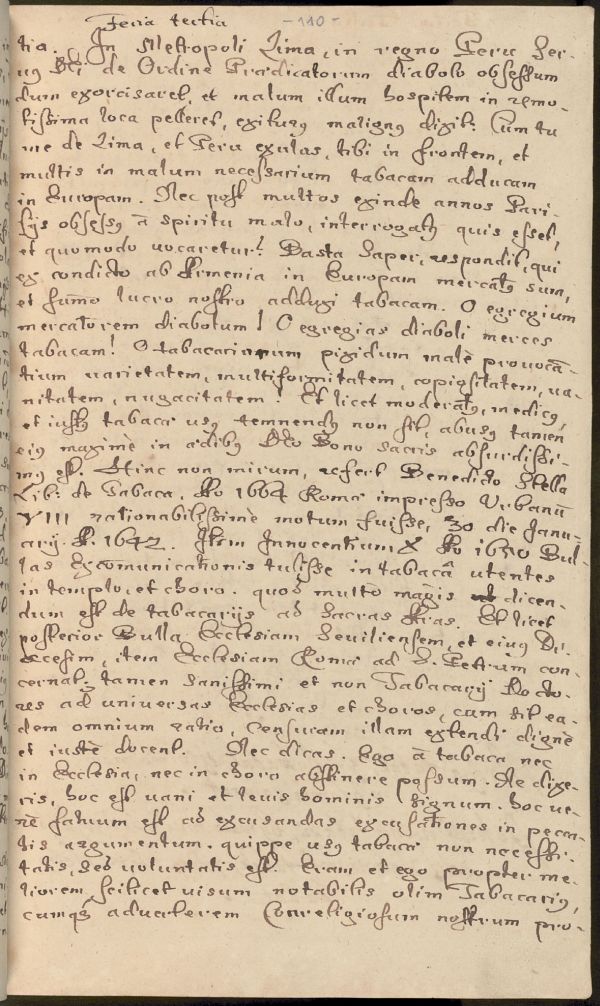 Feria tertia -110-
tia. In Metropoli Lima, in regno Peru Ser-
us Dei de Ordine Prædicatorum diabolo obsessum
dum exorcisaret, et malum illum hospitem in remo-
tissima loca pelleret, exiturus malignus dixit: Cum tu
me de Lima, et Peru exulas, tibi in frontem, et
multis in malum necessarium tabacam adducam
in Europam. Nec post multos exinde annos Pari-
sijs obsessus à spiritu malo, interrogatus quis esset,
et quomodo vocaretur? Basta Saper, respondit, qui
ex condicto ab Armenia in Europam mercatus sum,
et summo lucro nostro adduxi tabacam. O egregium
mercatorem diabolum! O egregias diaboli merces
tabacam! O tabacarium pixidum malè provocan-
tium varietatem, multiformitatem, copiositatem, va-
nitatem, nugacitatem! Et licet moderatus, medicus,
et iustus tabacæ usus temnendus non sit, abusus tamen
eius maximè in ædibus Deo Bono sacris absurdissi-
mus est. Hinc non mirum, refert Benedicto Stella
Lib: de Tabaca, Ao 1664 Romæ impresso Urbanum
VIII rationabilissimè motum fuisse, 30 die Janu-
arij A. 1642. Item Innocentium X Ao 1650 Bul-
las Excomunicationis tulisse in tabacâ utentes
in templo, et choro. quod multò magis dicen-
dum est de tabacarijs ad Sacras Aras. Et licet
posterior Bulla Ecclesiam Seviliensem, et eius Di-
œcesim, item Ecclesiam Romæ ad S. Petrum con-
cernat; tamen sanissimi et non Tabacarij Docto-
res ad universas Ecclesias et choros, cum sit ea-
dem omnium ratio, Censuram illam extendi dignè
et iustè docent. Nec dicas. Ego à tabaca nec
in Ecclesia, nec in choro abstinere possum. Ne dixe-
ris, hoc est vani et levis hominis signum. hoc ve-
rè fatuum est ad excusandas excusationes in pecca-
tis argumentum. quippe usus tabacæ non necessi-
tatis, sed voluntatis est. Eram et ego propter me-
liorem scilicet visum notabilis olim Tabacarius,
cumque adverterem Conreligiosum nostrum pro-